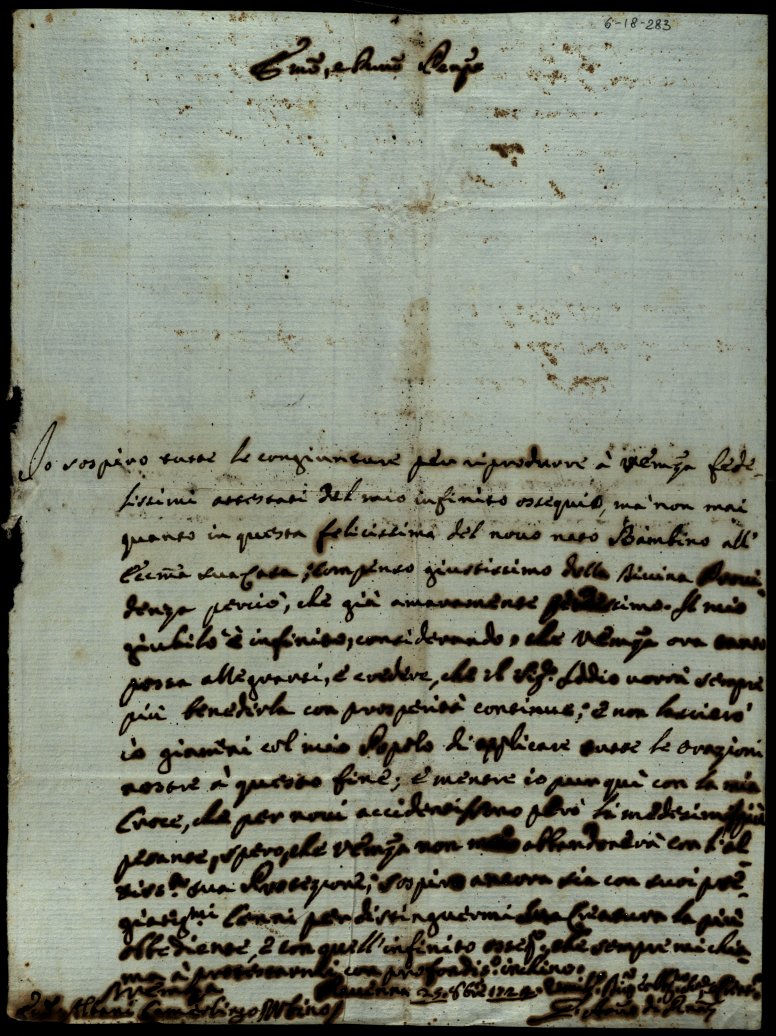 6-18-283
Emo, e Rmo Penpe
Io sospiro tutte le congiunture per riprodurre à VEmza fede-
lissimi attestati del mio infinito ossequio, ma non mai
quanto in questa felicissima del novo nato Bambino all'
Eccma sua Casa, compenso giustissimo della Divina Provi-
denza perciò, che già amaramente
giubilo è infinito, considerando, che VEmza ora tanto
possa allegrarsi, e credere, che il Sigr Iddio vorrà sempre
più benedirla con prosperità continue; e non lascierò
io col mio Popolo di applicare tutte le orazioni
nostre à questo fine; e mentre io pur quì con la mia
Croce, che per novi accidenti però la medesima più
pesante, spero, che VEmza non mai abbandonerà con l'al-
tissa sua Protezione; sospiro ancora sia con suoi pre-
giatismi Cenni per distinguermi sua Creatura la più
obbediente, e con quell'infinito osseqo, che sempre mi chia-
ma à protestarmi, con profondiso inchino.
VEmza
Ravenna 25 1724
Albani Camerlingo Urbino